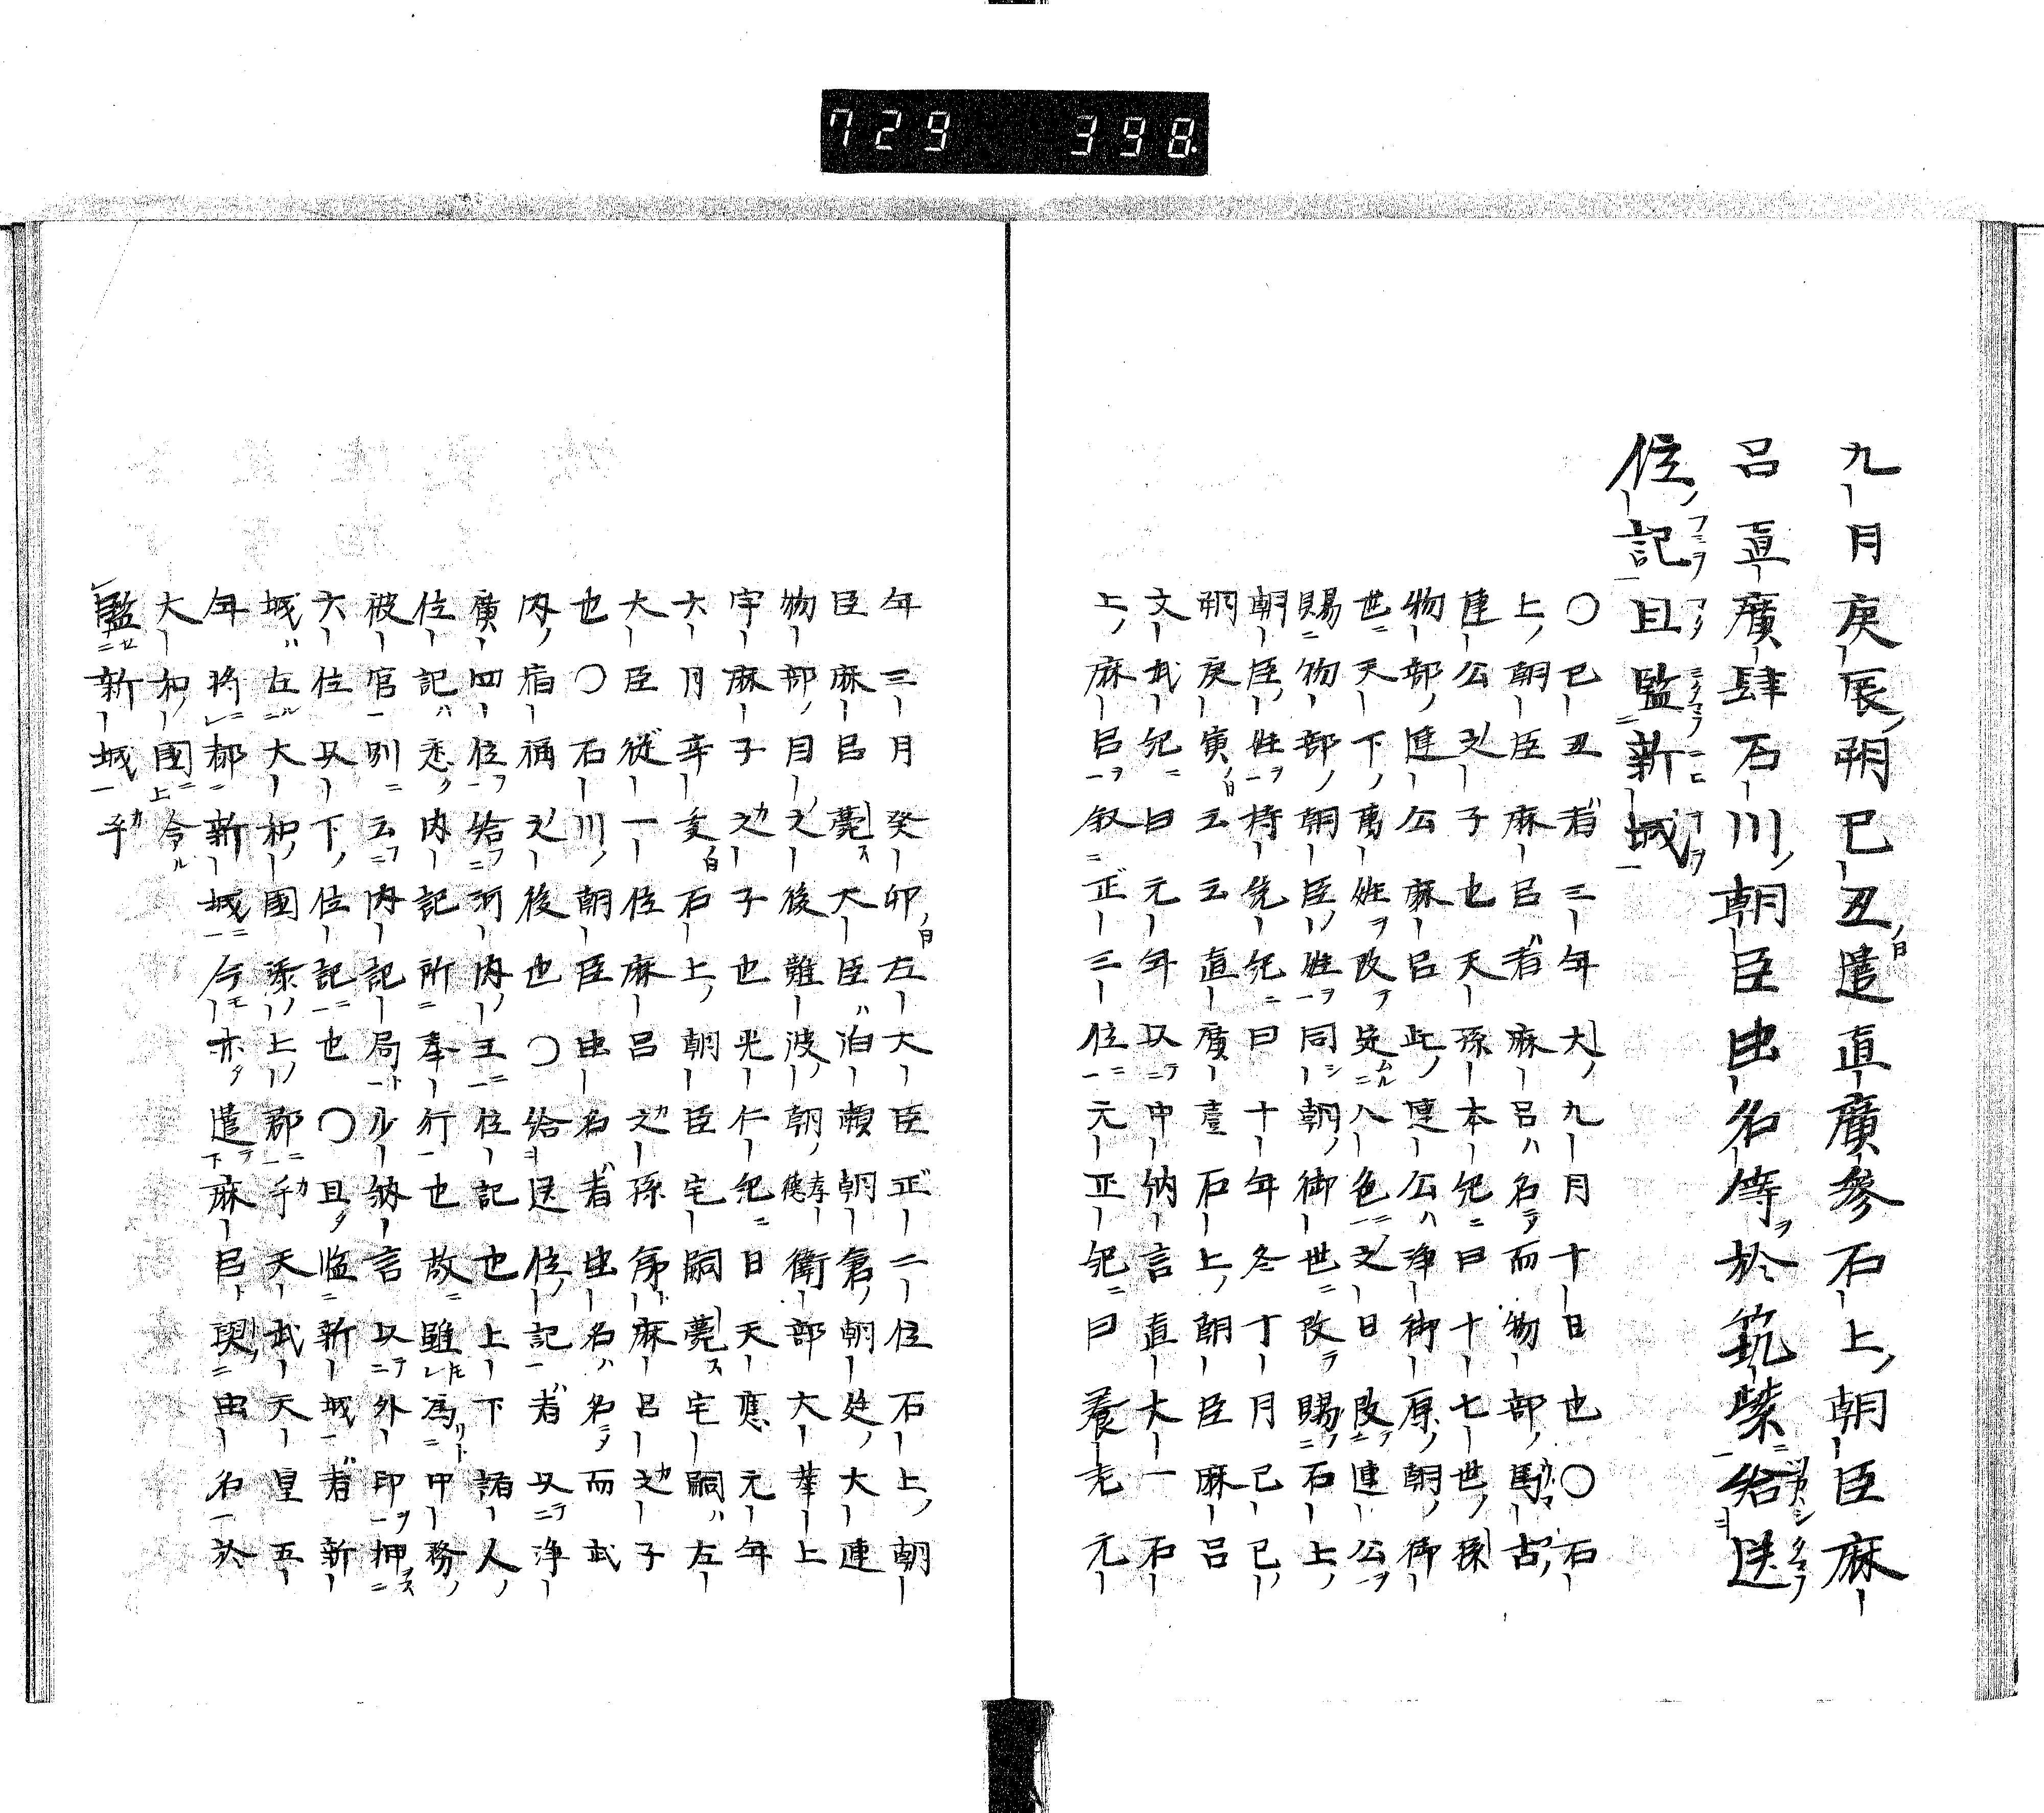 729 398
九月庚辰朔己丑遣直廣參石上朝臣麻
呂直廣肆石川朝臣虫名等於筑紫給送
位記且監新城
〇己丑者三年大九月十日也〇石
上朝臣麻呂者麻呂ハ名テ而物部馬古
連公之子也天孫本紀曰十七世孫
物部連公麻呂此連公ハ淨御原朝御
世天下萬姓改定八色之日改連公
賜物部朝臣姓同朝御世改賜石上
朝臣姓持統紀曰十年冬十月己巳
朔庚寅云云直廣壹石上朝臣麻呂
文武紀曰元年以中納言直大一石
上麻呂叙正三位元正紀曰養老元
年三月癸卯左大臣正二位石上朝
臣麻呂薨大臣泊瀬朝倉朝姓大連
物部目之後難波朝孝德朝衛部大華上
宇麻子之子也光仁紀曰天應元年
六月辛亥石上朝臣宅嗣薨宅嗣左
大臣從一位麻呂之孫弟麻呂之子
也〇石川朝臣虫名者虫名ハ名而武
内宿祢之後也〇給送位記者以淨
廣四位給河内王位記也上下諸人
位記悉内記所奉行也故雖馮中務
被官別云内記局少納言以外印押
六位以下位記也〇且監新城者新
城ハ在大和國添上郡乎天武天皇五
年將都新城今亦遣麻呂與虫名於
大和國令
監新城乎